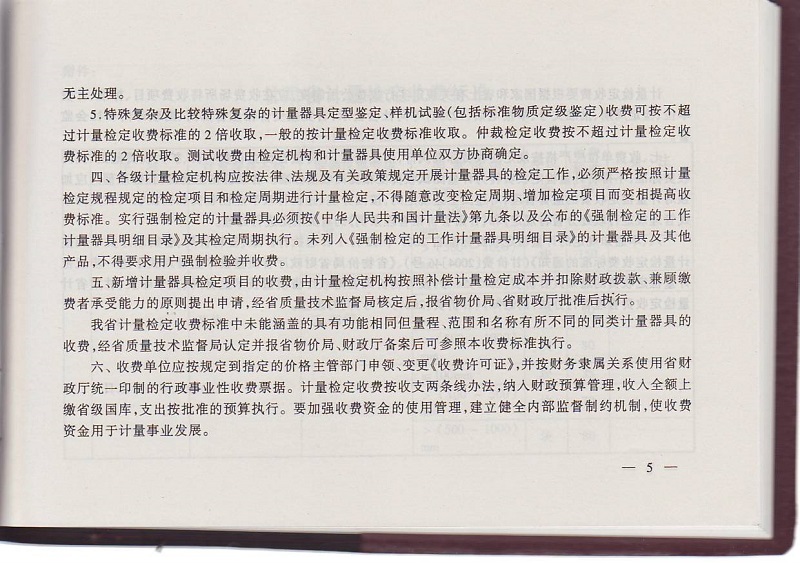 无主处理。
5.特殊复杂及比较特殊复杂的计量器具定型鉴定、样机试验(包括标准物质定级鉴定)收费可按不超
过计量检定收费标准的2倍收取,一般的按计量检定收费标准收取。仲裁检定收费按不超过计量检定收
费标准的2倍收取。测试收费由检定机构和计量器具使用单位双方协商确定。
四、各级计量检定机构应按法律、法规及有关政策规定开展计量器具的检定工作,必须严格按照计量
检定规程规定的检定项目和检定周期进行计量检定,不得随意改变检定周期、增加检定项目而变相提高收
费标准。实行强制检定的计量器具必须按《中华人民共和国计量法》第九条以及公布的《强制检定的工作
计量器具明细目录》及其检定周期执行。未列入《强制检定的工作计量器具明细目录》的计量器具及其他
产品,不得要求用户强制检验并收费。
五、新增计量器具检定项目的收费,由计量检定机构按照补偿计量检定成本并扣除财政拨款、兼顾缴
费者承受能力的原则提出申请,经省质量技术监督局核定后,报省物价局、省财政厅批准后执行。
我省计量检定收费标准中未能涵盖的具有功能相同但量程、范围和名称有所不同的同类计量器具的
收费,经省质量技术监督局认定并报省物价局、财政厅备案后可参照本收费标准执行。
六、收费单位应按规定到指定的价格主管部门申领、变更《收费许可证》,并按财务隶属关系使用省财
政厅统一印制的行政事业性收费票据。计量检定收费按收支两条线办法,纳入财政预算管理,收入全额上
缴省级国库,支出按批准的预算执行。要加强收费资金的使用管理,建立健全内部监督制约机制,使收费
资金用于计量事业发展。
— 5 —